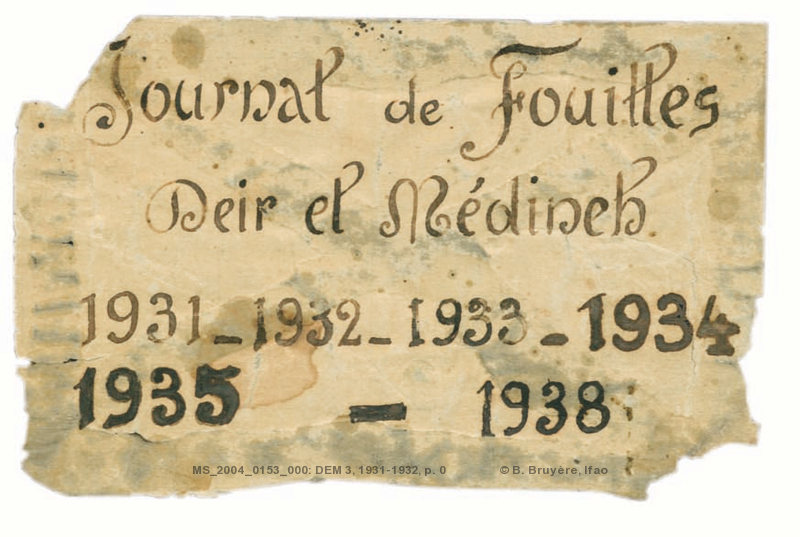 Journal de Fouilles
Deir el Médineh
1931_1932_1933_1934
1935 — 1938
MS_2004_0153_000: DEM 3, 1931-1932, p. 0 © B. Bruyère, Ifao